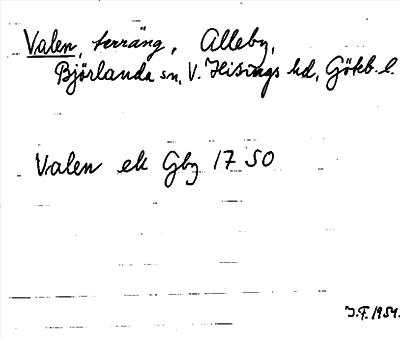 Valen, terräng, Alleby,
Björlanda sn, V. Hisings hd, Göteb. l.
Valen ek Gbg 1750
I.F. 1954.